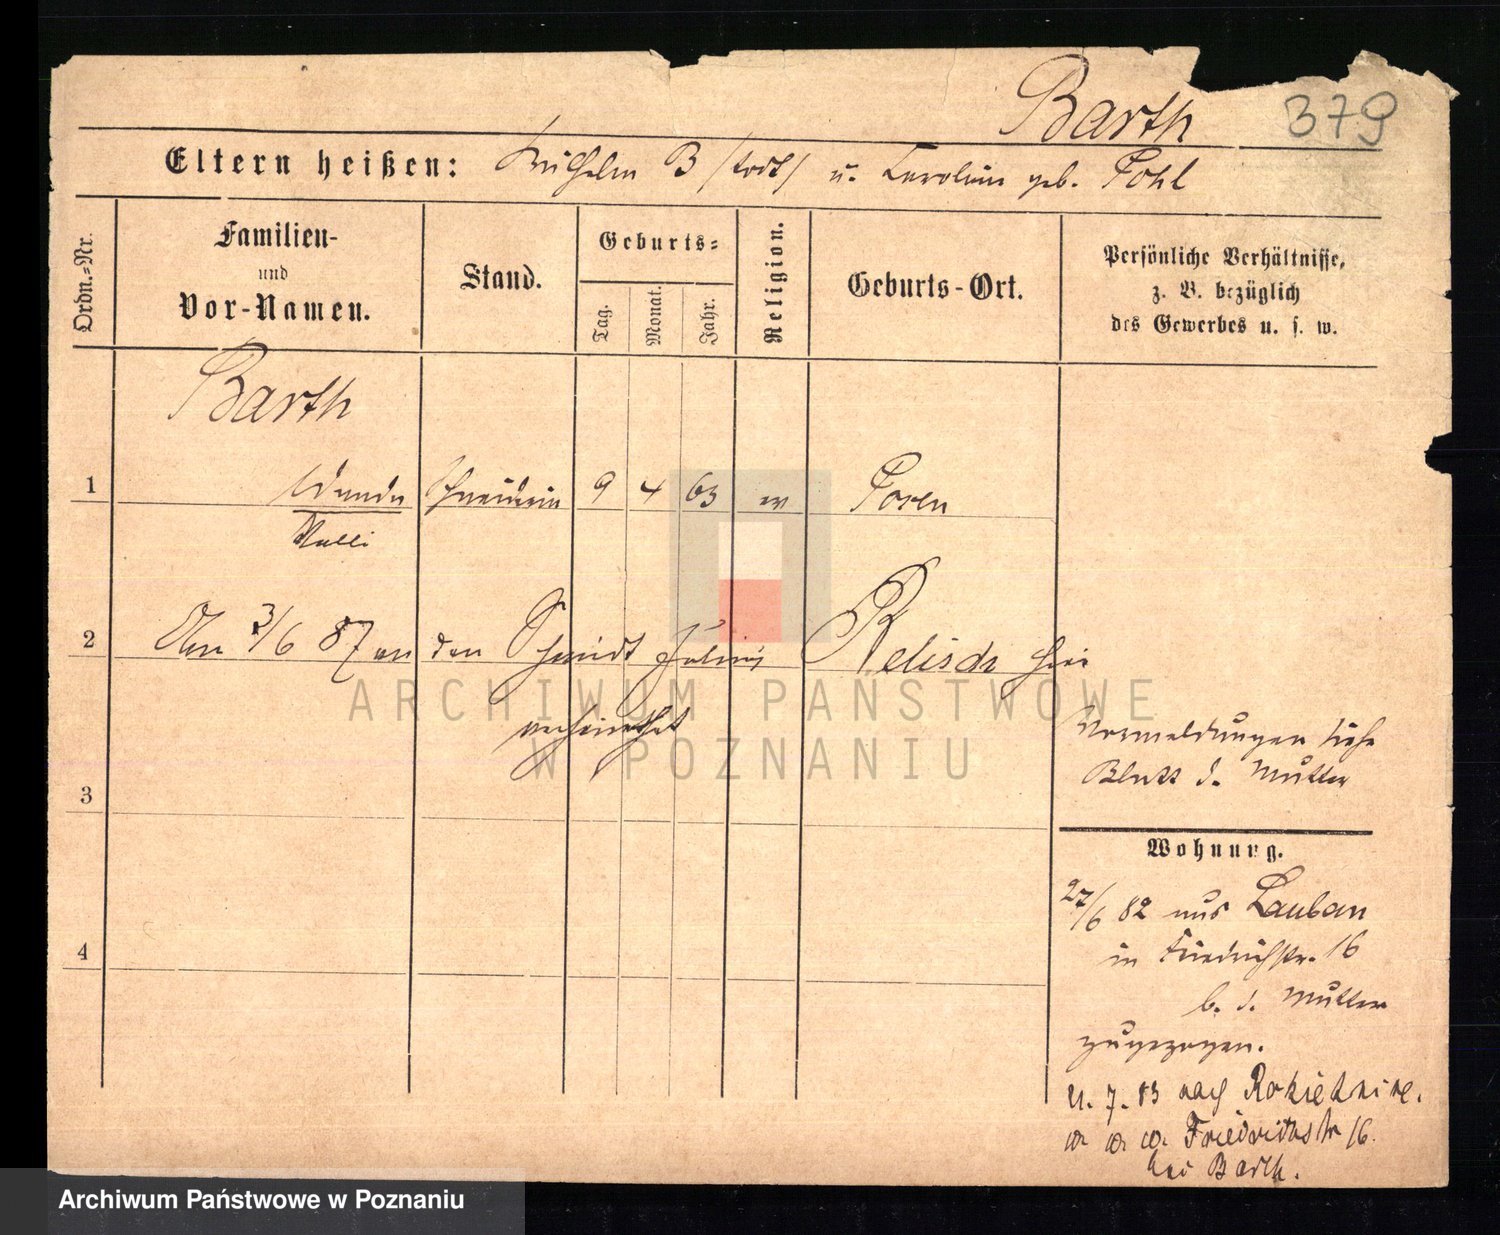 Barth 379
Eltern heißen: Wilhelm B /todt/ u. Karoline geb. Pohl
Ordn.-Nr.
Familien-
und
Vor-Namen.
Stand.
Geburts-
Tag.
Monat.
Jahr.
Religion.
Geburts-Ort.
Persönliche Verhältnisse,
z. B. bezüglich
des Gewerbes u. s. w.
Barth
1 Wanda Schneiderin 9 4 63 ev Posen
Valli
2 Am 3/6 87 an den Schmidt Julius Relisch hier
verheirathet
ARCHIWUM PAŃSTWOWE
W POZNANIU
Vormeldungen siehe
Blatt d. Mutter
3
Wohnung.
27/6 82 aus Lauban
in Friedrichstr. 16
4
b. d. Mutter
zugezogen.
7. 83 nach Rokietnice.
Friedrichstr 16.
bei Barth.
Archiwum Państwowe w Poznaniu